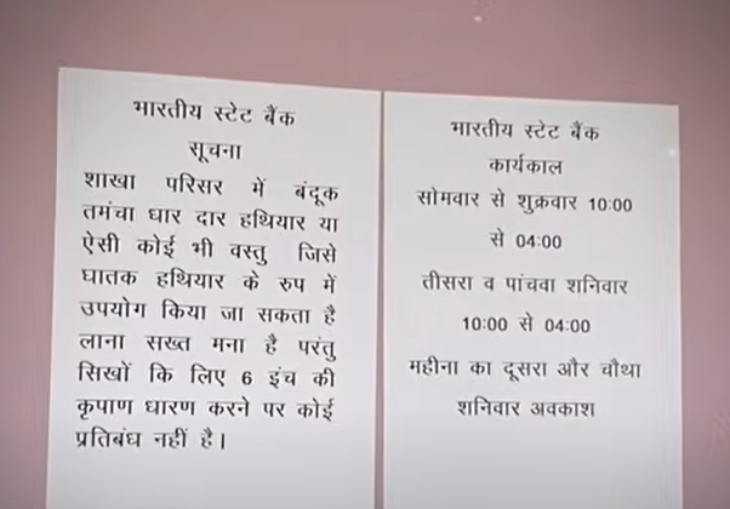 भारतीय स्टेट बैंक
सूचना
शाखा परिसर में बंदूक
तमंचा धार दार हथियार या
ऐसी कोई भी वस्तु जिसे
घातक हथियार के रुप में
उपयोग किया जा सकता है
लाना सख्त मना है परंतु
सिखों कि लिए 6 इंच की
कृपाण धारण करने पर कोई
प्रतिबंध नहीं है।
भारतीय स्टेट बैंक
कार्यकाल
सोमवार से शुक्रवार 10:00
से 04:00
तीसरा व पांचवा शनिवार
10:00 से 04:00
महीना का दूसरा और चौथा
शनिवार अवकाश